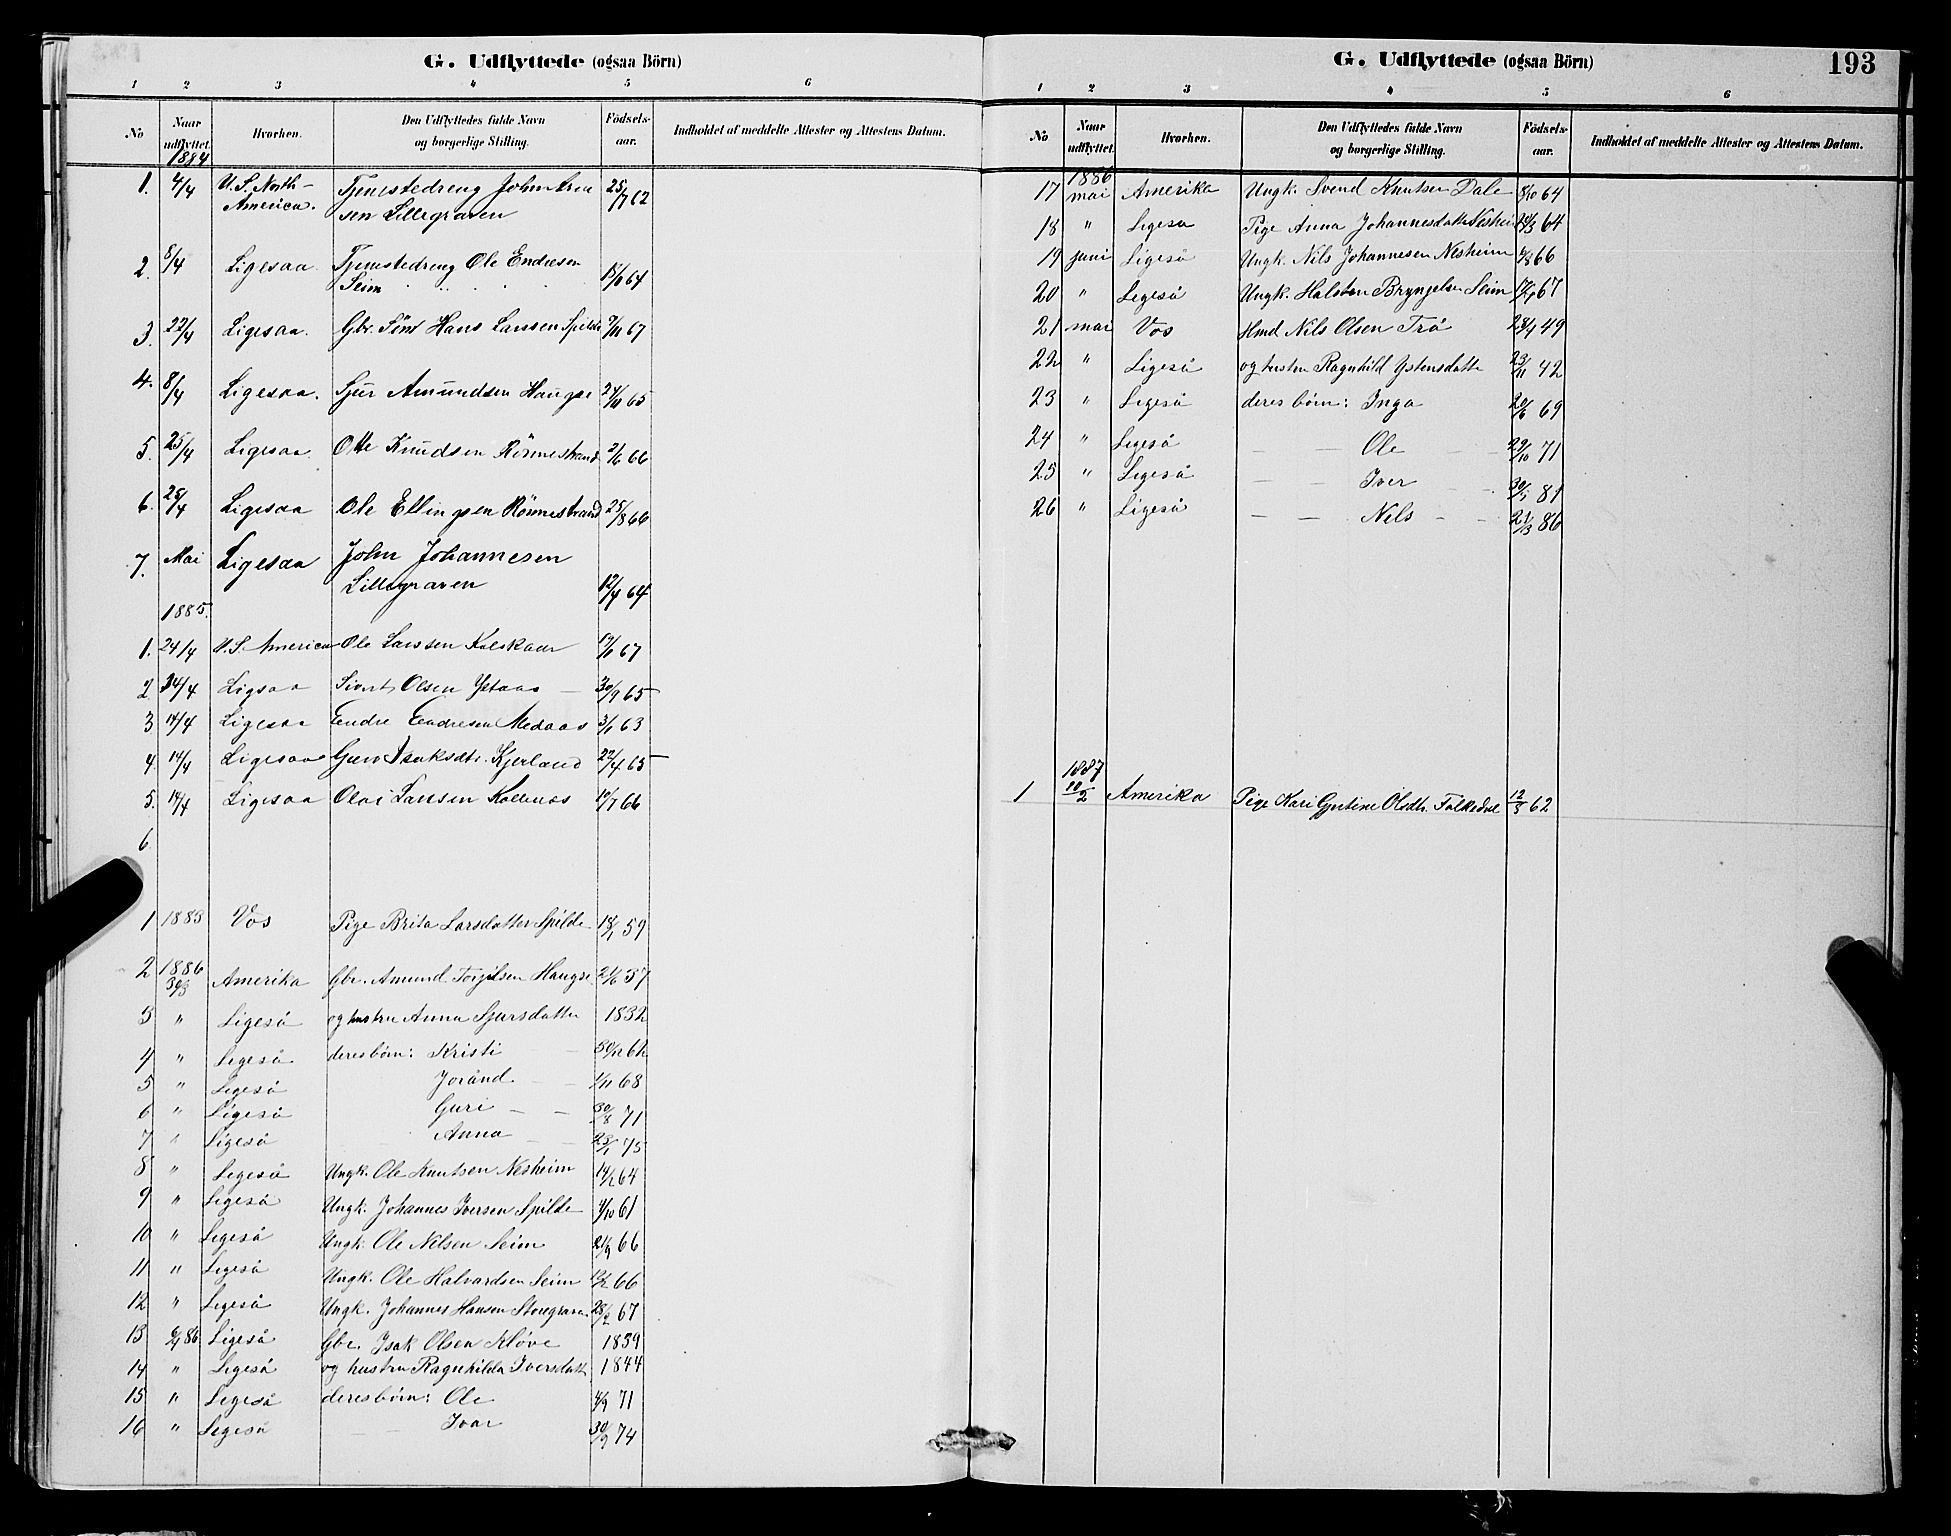 G. Udflyttede (ogsaa Börn)
1 2 3 4 5 6
No Naar udflyttet. Hvorhen. Den Udflyttedes fulde Navn og borgerlige Stilling. Födsels-aar. Indholdet af meddelte Attester og Attestens Datum.
1884
1. 4/4 U.S. North- Tjenestedreng John 25/7 62
America. sen Lillegraven
2. 8/4 Ligesaa Tjenestedreng Ole Endresen 64
Seim
3. 22/4 Ligesaa. Gbr. Sön Hans Larssen Spilde 67
4. 8/4 Ligesaa. Sjur Amundsen Haugse 65
5. 25/4 Ligesaa Otte Knudsen Rönnestrand 2/6 66
6. 25/4 Ligesaa Ole Ellingsen Rönnestrand 25/8 66
7. Mai Ligesaa John Johannesen
Lillegraven 12/4 64
1885.
1. 24/4 U.S. America Ole Larssen 67
2 24/4 Ligsaa Sivert Olsen Ystaas 30/9 65
3 14/4 Ligesaa Endre Endresen Medaas 3/1 63
4. 14/4 Ligesaa Guro Isaksdtr. Kjerland 22/4 65
5. 14/4 Ligesaa Olai Larsen Kollenæs 10/7 66
6
1 1883 Vos Pige Brita Larsdatter Spilde 18/1 59
2 1886 30/3 Amerika Gbr. Amund Torjilsen Haugse 21/6 37
3 " Ligeså og hustru Anna Sjursdatter 1832
4 " Ligeså deres börn: Kristi 30/12 62
5 " Ligeså Jorånd 1/11 68
6 " Ligeså Guri 30/8 71
7 " Ligeså Anna 23/1 75
8 " Ligeså Ungk. Ole Knutsen Nesheim 14/2 64
9 " Ligeså Ungk. Johannes Iversen Spilde 61
10 " Ligeså Ungk. Ole Nilsen Seim 21/9 66
11 " Ligeså Ungk. Ole Halvardsen Seim 66
12 " Ligeså Ungk. Johannes Hansen Storegraven 28/2 67
13 86 Ligeså Gbr. Isak Olsen Klöve 1839
14 " Ligeså og hustru Ragnhilda Iversdatt 1844
15 " Ligeså deres börn: Ole 4/9 71
16 " Ligeså Ivar 30/9 74
G. Udflyttede (ogsaa Börn) 193
1 2 3 4 5 6
No Naar udflyttet. Hvorhen. Den Udflyttedes fulde Navn og borgerlige Stilling. Födsels-aar. Indholdet af meddelte Attester og Attestens Datum.
1886
17 mai Amerika Ungk. Svend Knutsen Dale 8/10 64
18 " Ligeså Pige Anna Johannesdatter Nesheim 64
19 juni Ligeså Ungk. Nils Johannesen Nesheim 66
20 " Ligeså Ungk. Halsten Brynjelsen Seim 67
21 mai Vos Hmd Nils Olsen Trå 28/1 49
22 " Ligeså og hustru Ragnhild Ystensdatte 23/11 42
23 " Ligeså deres börn: Inga 20/6 69
24 " Ligeså Ole 29/10 71
25 " Ligeså Iver 81
26 " Ligeså Nils 21/3 86
1887
1 10/2 Amerika Pige Kari Gjertine Olsdtr. Folkedal 12/3 62